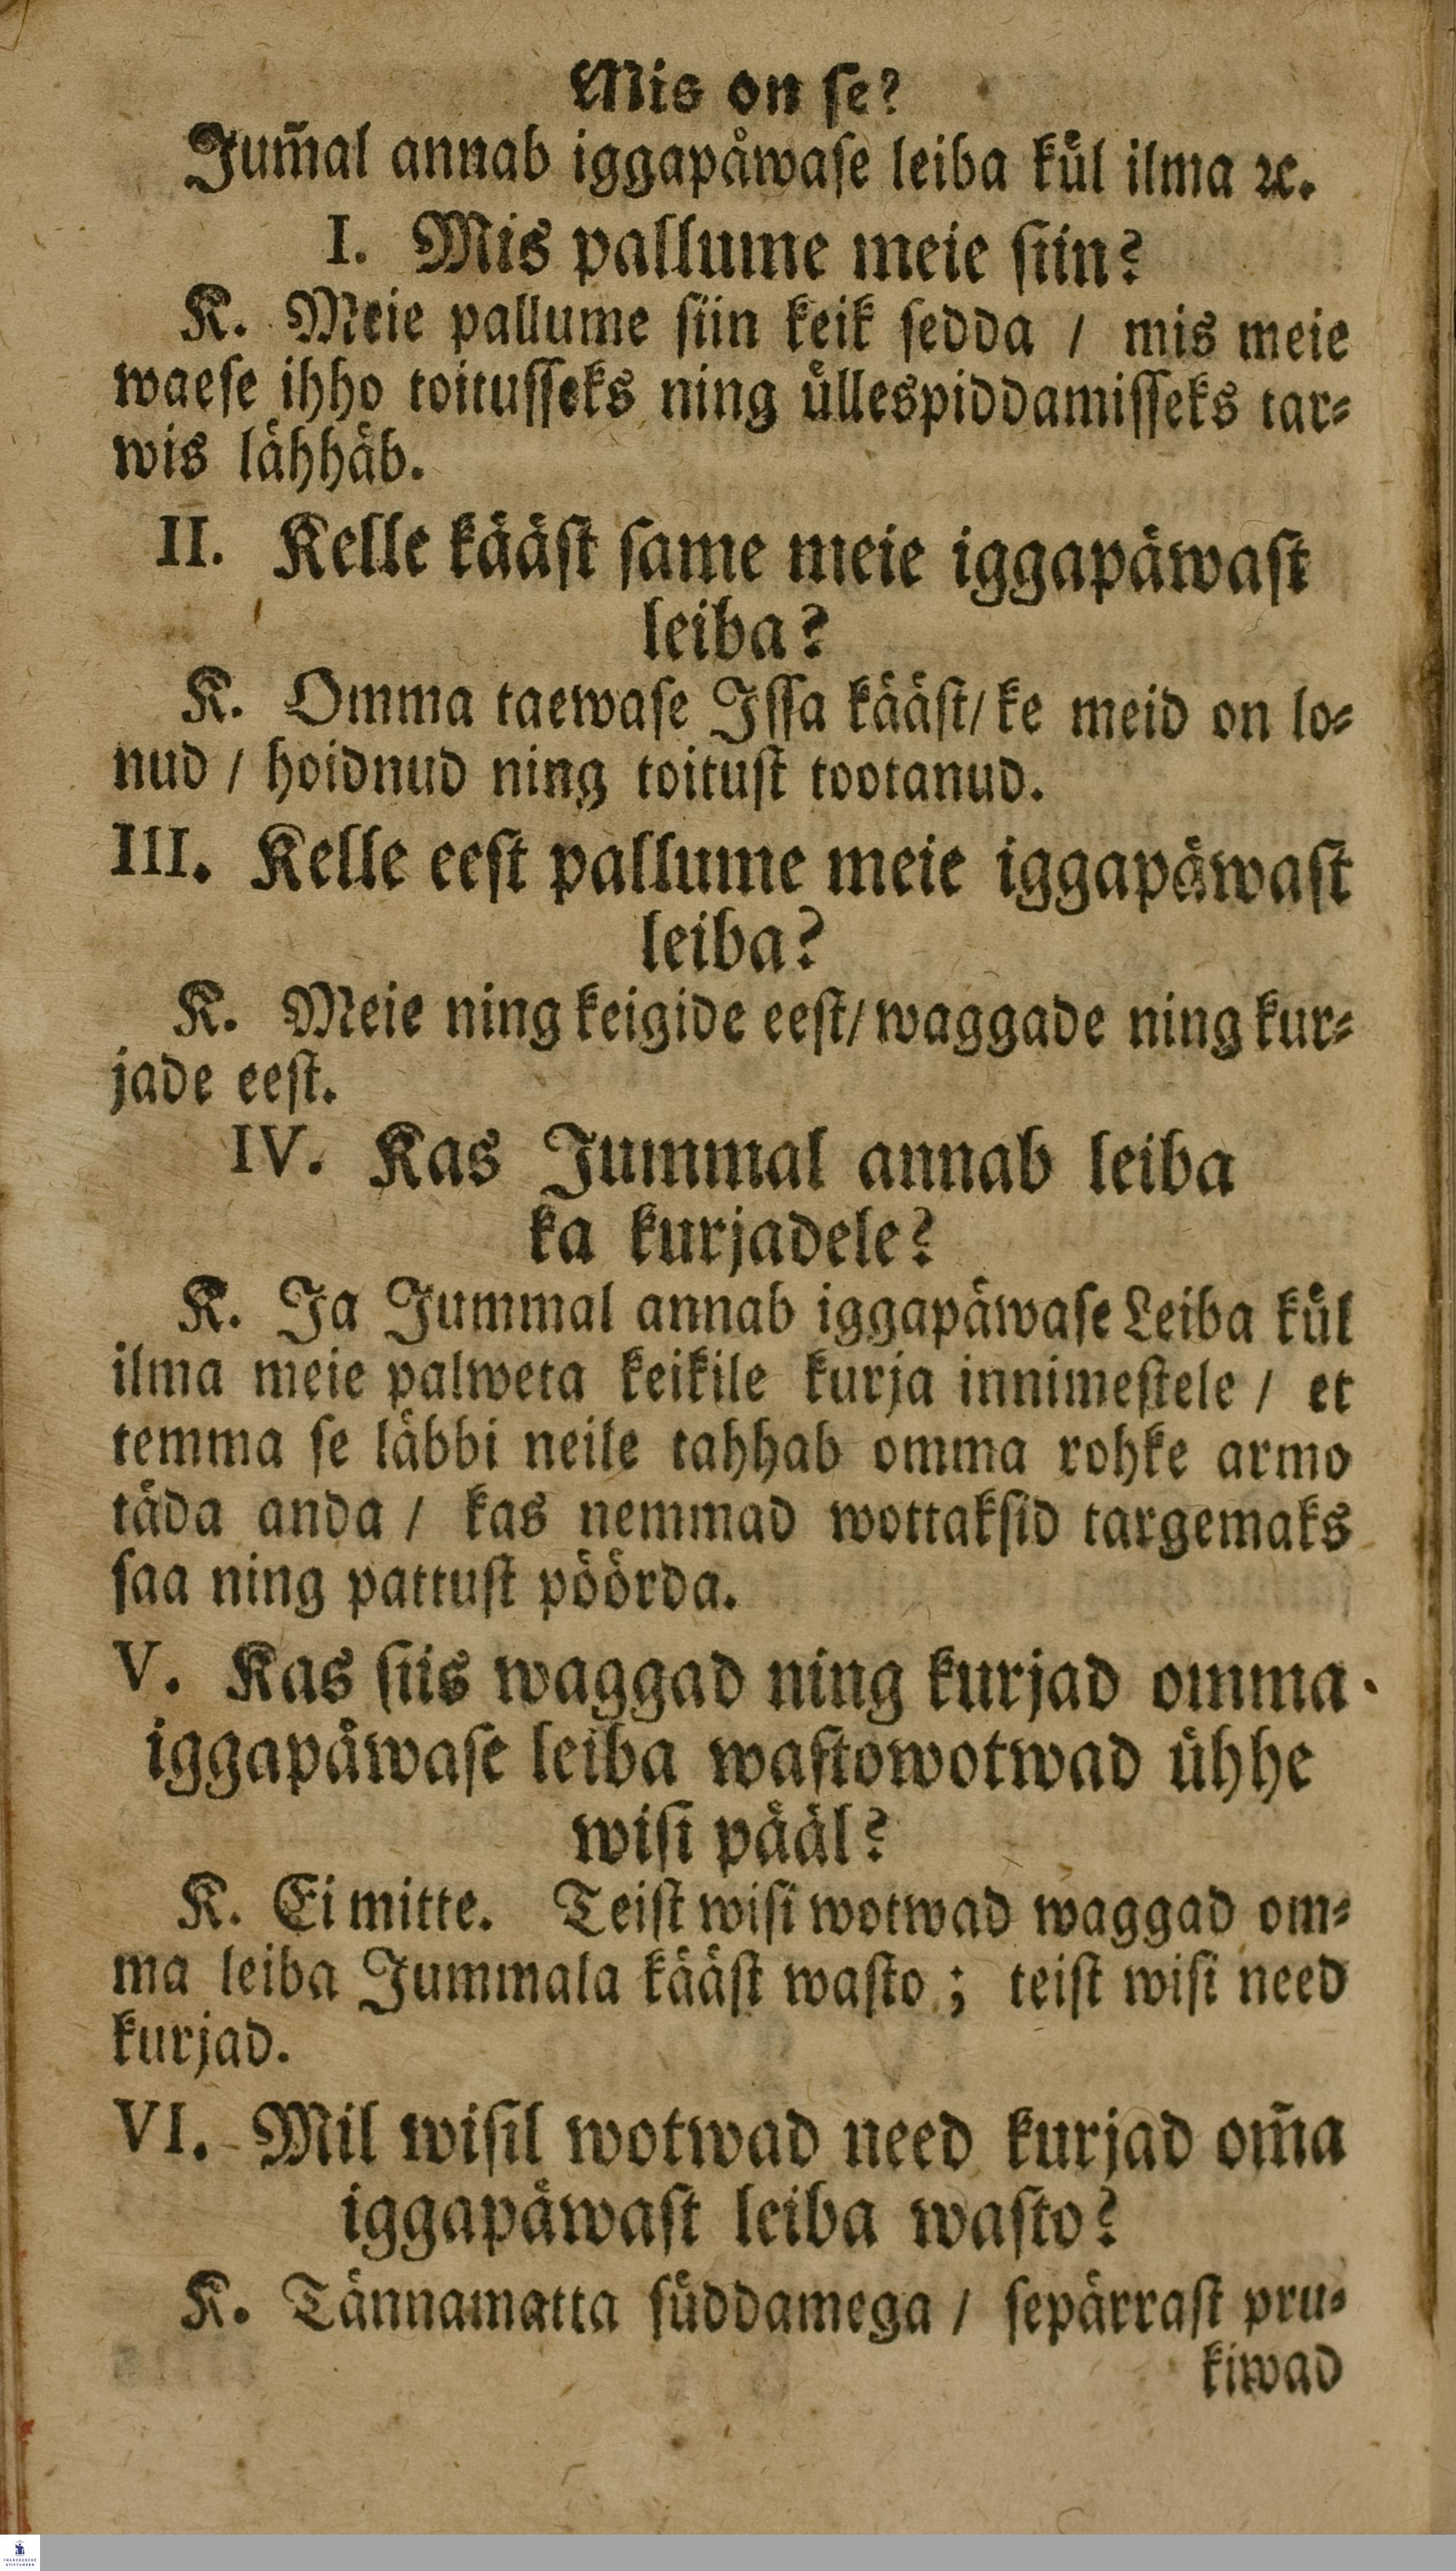 Mis on ſe?
Jum̃al annab iggapåwaſe leiba kůl ilma ꝛc.
I. Mis pallume meie ſiin?
K. Meie pallume ſiin keik ſedda / mis meie
waeſe ihho toituſſeks ning ůlleſpiddamiſſeks tar⸗
wis låhhåb.
II. Kelle kååſt ſame meie iggapåwaſt
leiba?
K. Omma taewaſe Iſſa kååſt/ ke meid on lo⸗
nud / hoidnud ning toituſt tootanud.
III. Kelle eeſt pallume meie iggapåwaſt
leiba?
K. Meie ning keigide eeſt/ waggade ning kur⸗
jade eeſt.
IV. Kas Jummal annab leiba
ka kurjadele?
K. Ja Jummal annab iggapåwaſe Leiba kůl
ilma meie palweta keikile kurja innimeſtele / et
temma ſe låbbi neile tahhab omma rohke armo
tåda anda / kas nemmad wottakſid targemaks
ſaa ning pattuſt pöörda.
V. Kas ſiis waggad ning kurjad omma
iggapåwaſe leiba waſtowotwad ůhhe
wiſi påål?
K. Ei mitte. Teiſt wiſi wotwad waggad om⸗
ma leiba Jummala kååſt waſto ; teiſt wiſi need
kurjad.
VI. Mil wiſil wotwad need kurjad om̃a
iggapåwaſt leiba waſto?
K. Tånnamatta ſůddamega / ſepårraſt pru⸗
kiwad
FRANCKESCHE
STIFTUNGEN